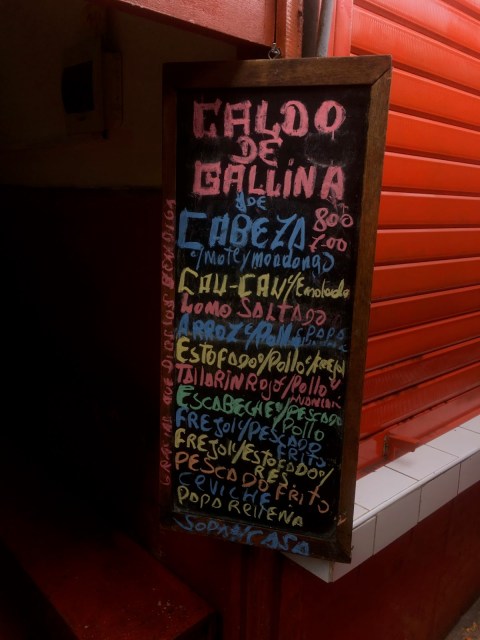 CALDO
DE
GALLINA
DE
CABEZA 800
C/MOTE Y MONDONGO 7.00
CAU-CAU C/Ensalada
LOMO SALTADO
ARROZ C/Pollo C/PAPA
ESTOFADO C/Pollo C/FREJOL
TAllARIN ROJO C/POLLO
ESCABECHE C/PESCADO
Pollo
FREJOL C/PESCADO
FRITO
FREJOL C/ESTOFADO C/
RES
PESCADO FRITO
CEVICHE
PAPA RELLENA
SOPA CASA
QUE DIOS LOS BENDIGA